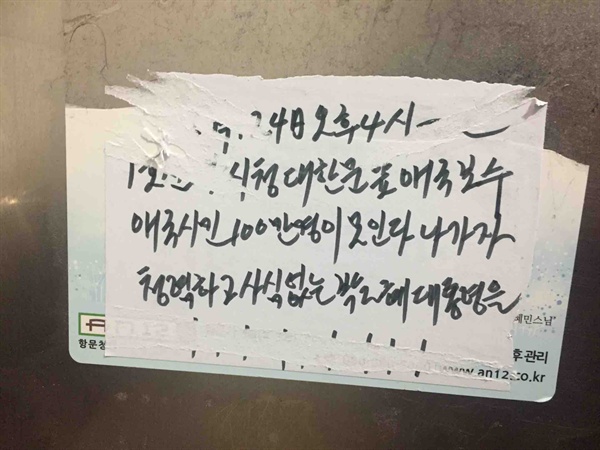 24日 오후 4시
시청 대한문 앞 애국보수
애국시민 100만명이 모인다 나가자
청렴하고 사심없는 박근혜 대통령을
혜민스님"
항문청
후관리
www.an12.co.kr